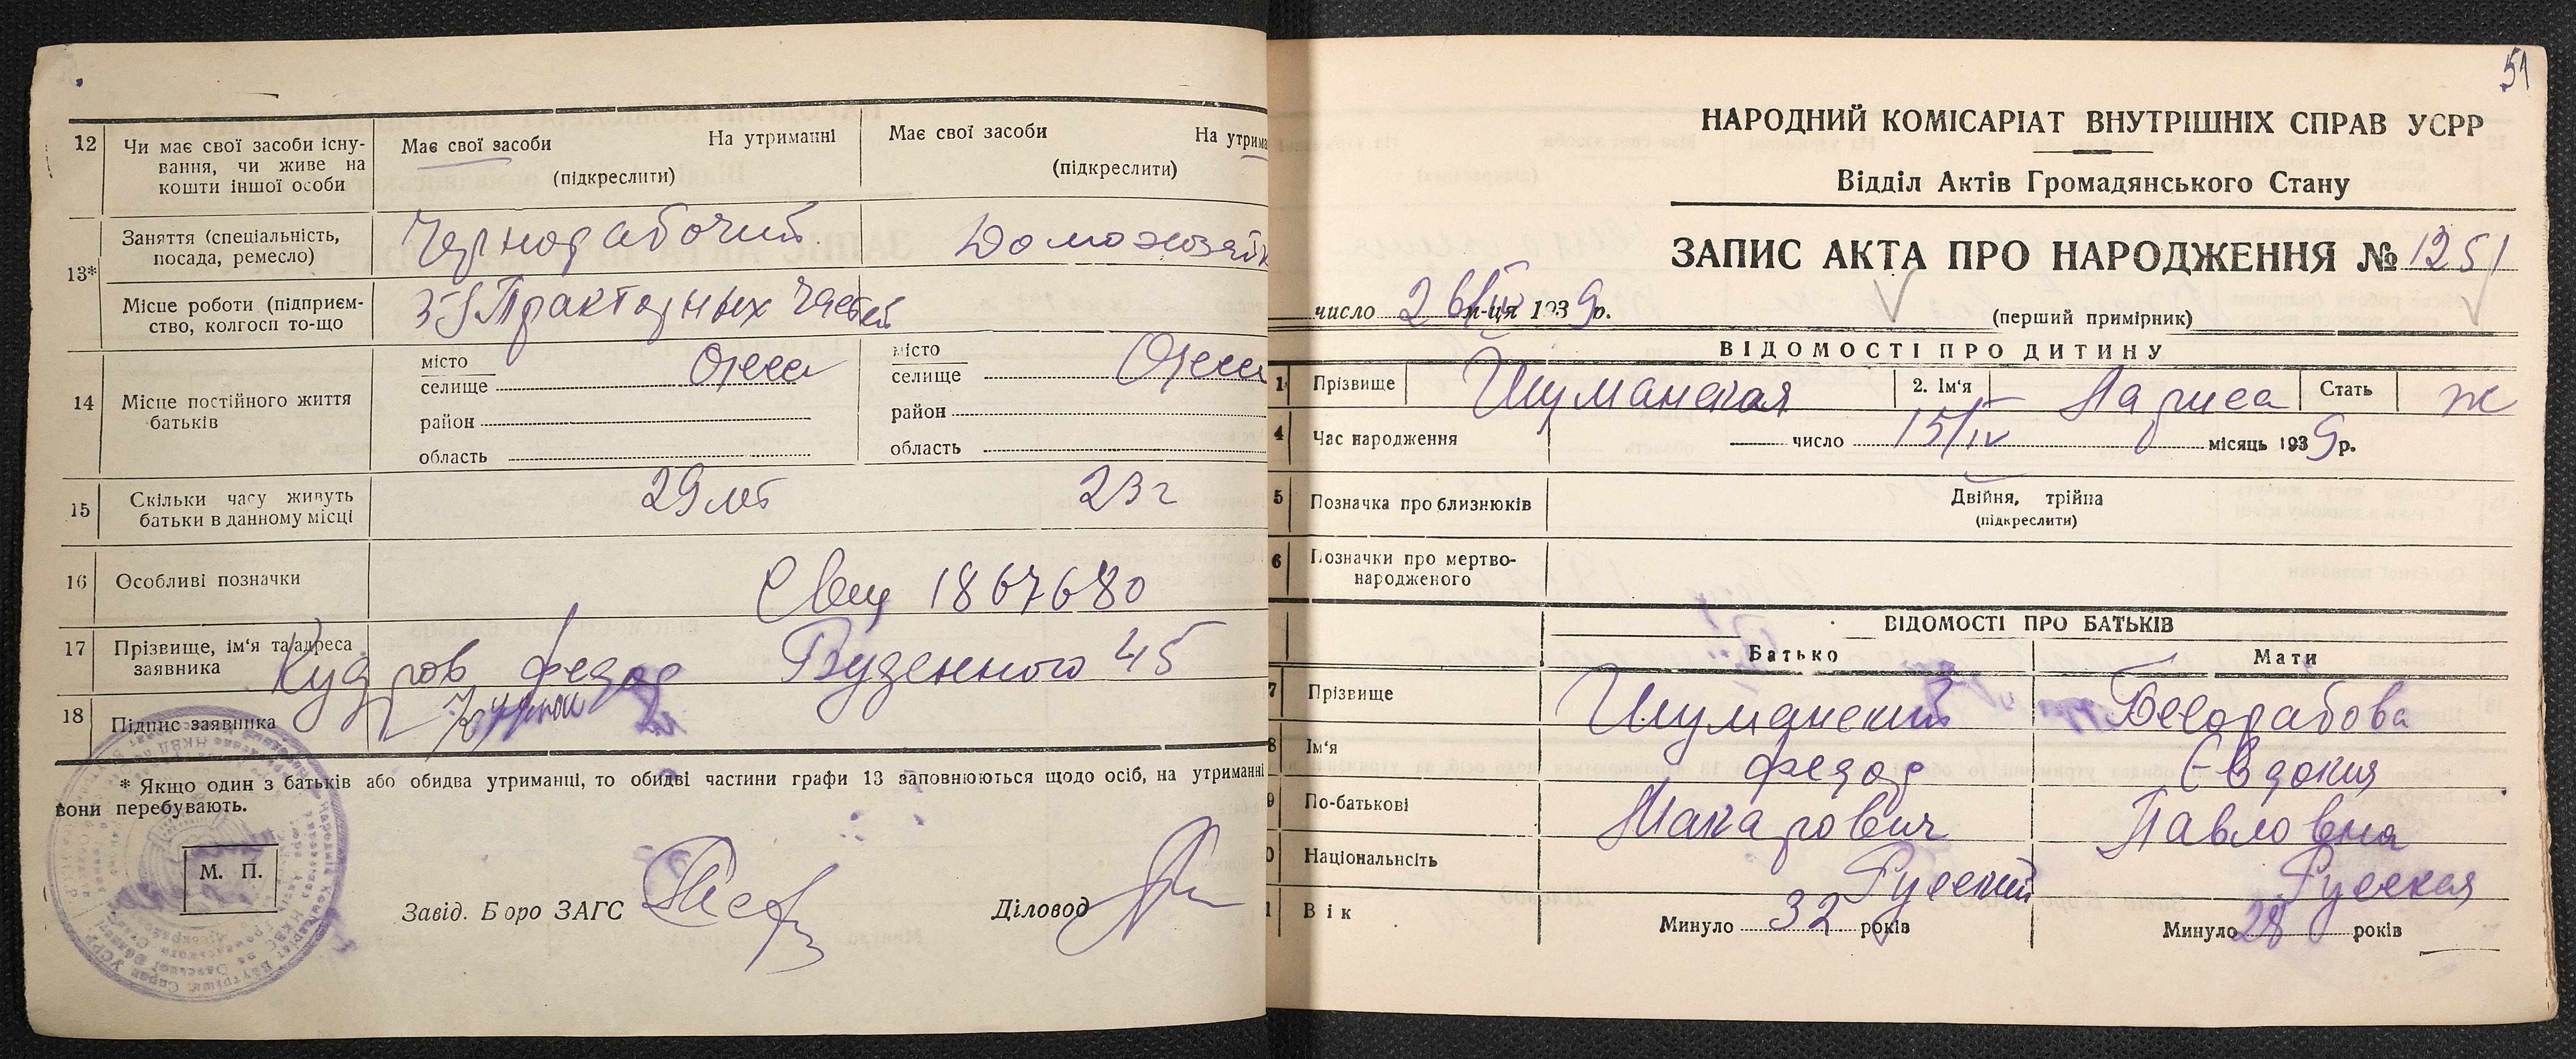 12
Чи має свої засоби існу-
вання, чи живе на
кошти іншої особи
Має свої засоби
На утриманні
(підкреслити)
Має свої засоби
На утрима
(підкреслити)
13*
Заняття (спеціальність,
посада, ремесло)
Чернорабочий
Домохозяйк
Місце роботи (підприєм-
ство, колгосп то-що
Тракторных частей
14
Місце постійного життя
батьків
місто
селище
Одесса
район
область
місто
селище
Одесса
район
область
15
Скільки часу живуть
батьки в данному місці
29 лет
23 г
16
Особливі позначки
Свид 1867680
17
Прізвище, ім'я та адреса
заявника
Кудров Федор Буденного 45
18
Підпис заявника
* Якщо один з батьків або обидва утриманці, то обидві частини графи 13 заповнюються щодо осіб, на утриманні
вони перебувають.
М. П.
Завід. Бюро ЗАГС
Діловод
51
НАРОДНИЙ КОМІСАРІАТ ВНУТРІШНІХ СПРАВ УСРР
Відділ Актів Громадянського Стану
ЗАПИС АКТА ПРО НАРОДЖЕННЯ № 1251
число 26/IV м-ця 1939р.
(перший примірник)
ВІДОМОСТІ ПРО ДИТИНУ
1
Прізвище
Шуманская
2. Ім'я
Лариса
Стать
ж
4
Час народження
число 15/IV місяць 1939р.
5
Позначка про близнюків
Двійня, трійпа
(підкреслити)
6
Позначки про мертво-
народженого
ВІДОМОСТІ ПРО БАТЬКІВ
Батько
Мати
7
Прізвище
Шуманский
8
Ім'я
Федор
Евдокия
9
По-батькові
Макарович
Павловна
0
Національнсіть
Русский
Русская
1
Вік
Минуло 32 років
Минуло 28 років